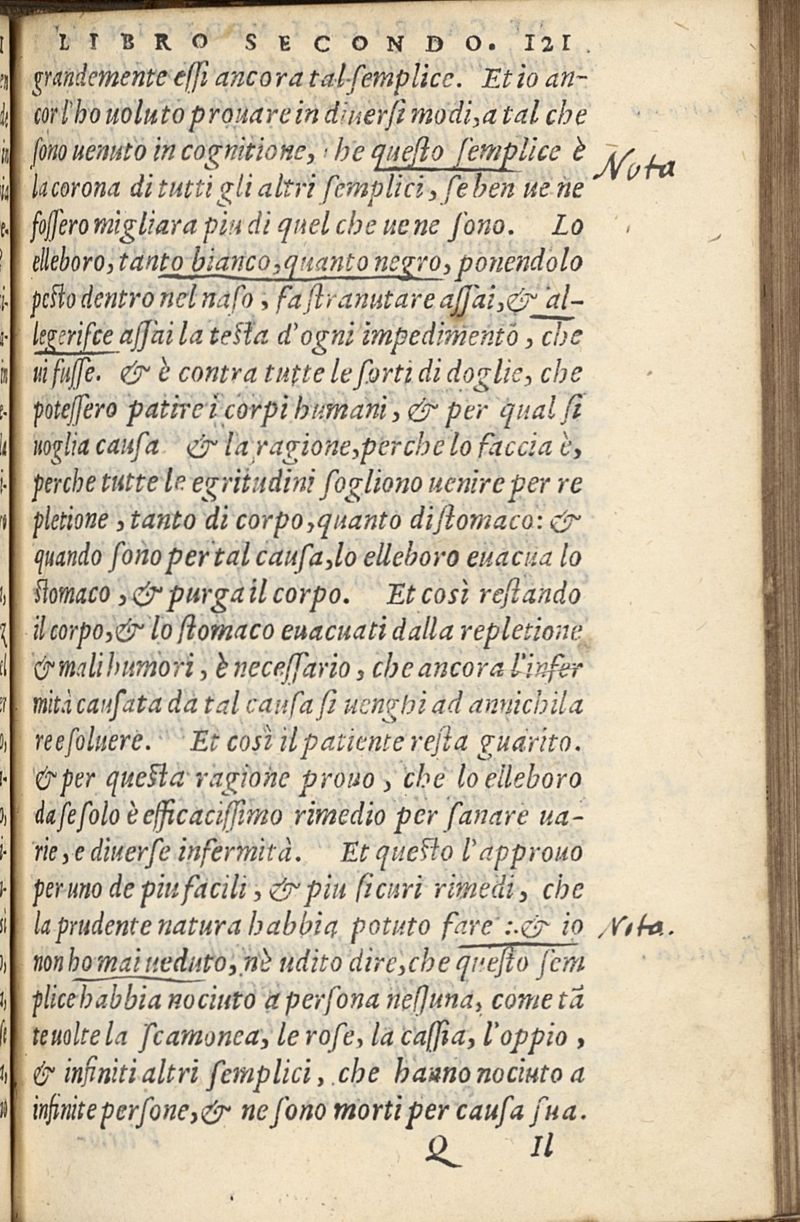 LIBRO SECONDO. 121
grandemente eſſi ancora tal ſemplice. Et io an-
cor l'ho uoluto prouare in diuerſi modi, a tal che
ſono uenuto in cognitione, he queſto ſemplice è
Nota
la corona di tutti gli altri ſemplici, ſe ben ue ne
foſſero migliara piu di quel che ue ne ſono. Lo
elleboro, tanto bianco, quanto negro, ponendolo
peſto dentro nel naſo, fa ſtranutare aſſai, & al-
legeriſce aſſai la teſta d'ogni impedimento, che
ui fuſſe. & è contra tutte le ſorti di doglie, che
poteſſero patire i corpi humani, & per qual ſi
uoglia cauſa & la ragione, perche lo faccia è,
perche tutte le egritudini ſogliono uenire per re
pletione, tanto di corpo, quanto di ſtomaco: &
quando ſono per tal cauſa, lo elleboro euacua lo
ſtomaco, & purga il corpo. Et così reſtando
il corpo, & lo ſtomaco euacuati dalla repletione
& mali humori, è neceſſario, che ancora l'infer
mità cauſata da tal cauſa ſi uenghi ad annichila
re e ſoluere. Et così il patiente reſta guarito.
& per queſta ragione prouo, che lo elleboro
da ſe ſolo è efficaciſſimo rimedio per ſanare ua-
rie, e diuerſe infermità. Et queſto l'approuo
per uno de piu facili, & piu ſicuri rimedi, che
la prudente natura habbia potuto fare :. & io
Nota.
non ho mai ueduto, nè udito dire, che queſto ſem
plice habbia nociuto a perſona neſſuna, come tā
te uolte la ſcamonea, le roſe, la caſſia, l'oppio,
& infiniti altri ſemplici, che hanno nociuto a
infinite perſone, & ne ſono morti per cauſa ſua.
Q Il